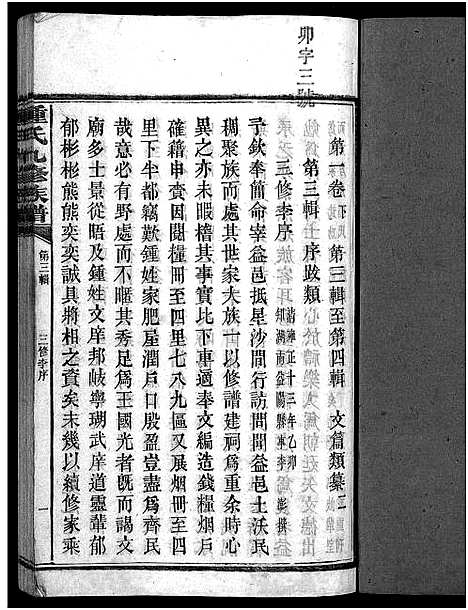 卯字三號
第一卷 第三輯至第四輯 文篇類纂二
第三輯上 序跋類
三修李序
清雍正十三年乙卯
益陽縣宰李 澎撰
予欽奉簡命宰益邑抵星沙間行訪問閭益邑土沃民
稠聚族而處其世家大族士以修譜建祠爲重余時心
異之亦未暇稽其事實比下車適奉文編造錢糧烟戶
確籍申賫因閱糧冊至四里七八九區展烟冊至四
里下半都竊歎鍾姓家肥屋潤戶口殷盈豈盡爲齊民
哉意必有野處而不暱其秀足爲王國光者既而謁文
廟多士景從晤及鍾姓文庠邦岐寧瑚武庠道靈輩郁
郁彬彬熊熊奕奕誠具將相之資矣未幾以續修家乘
鍾氏九修族譜
第三輯
三修李序
一